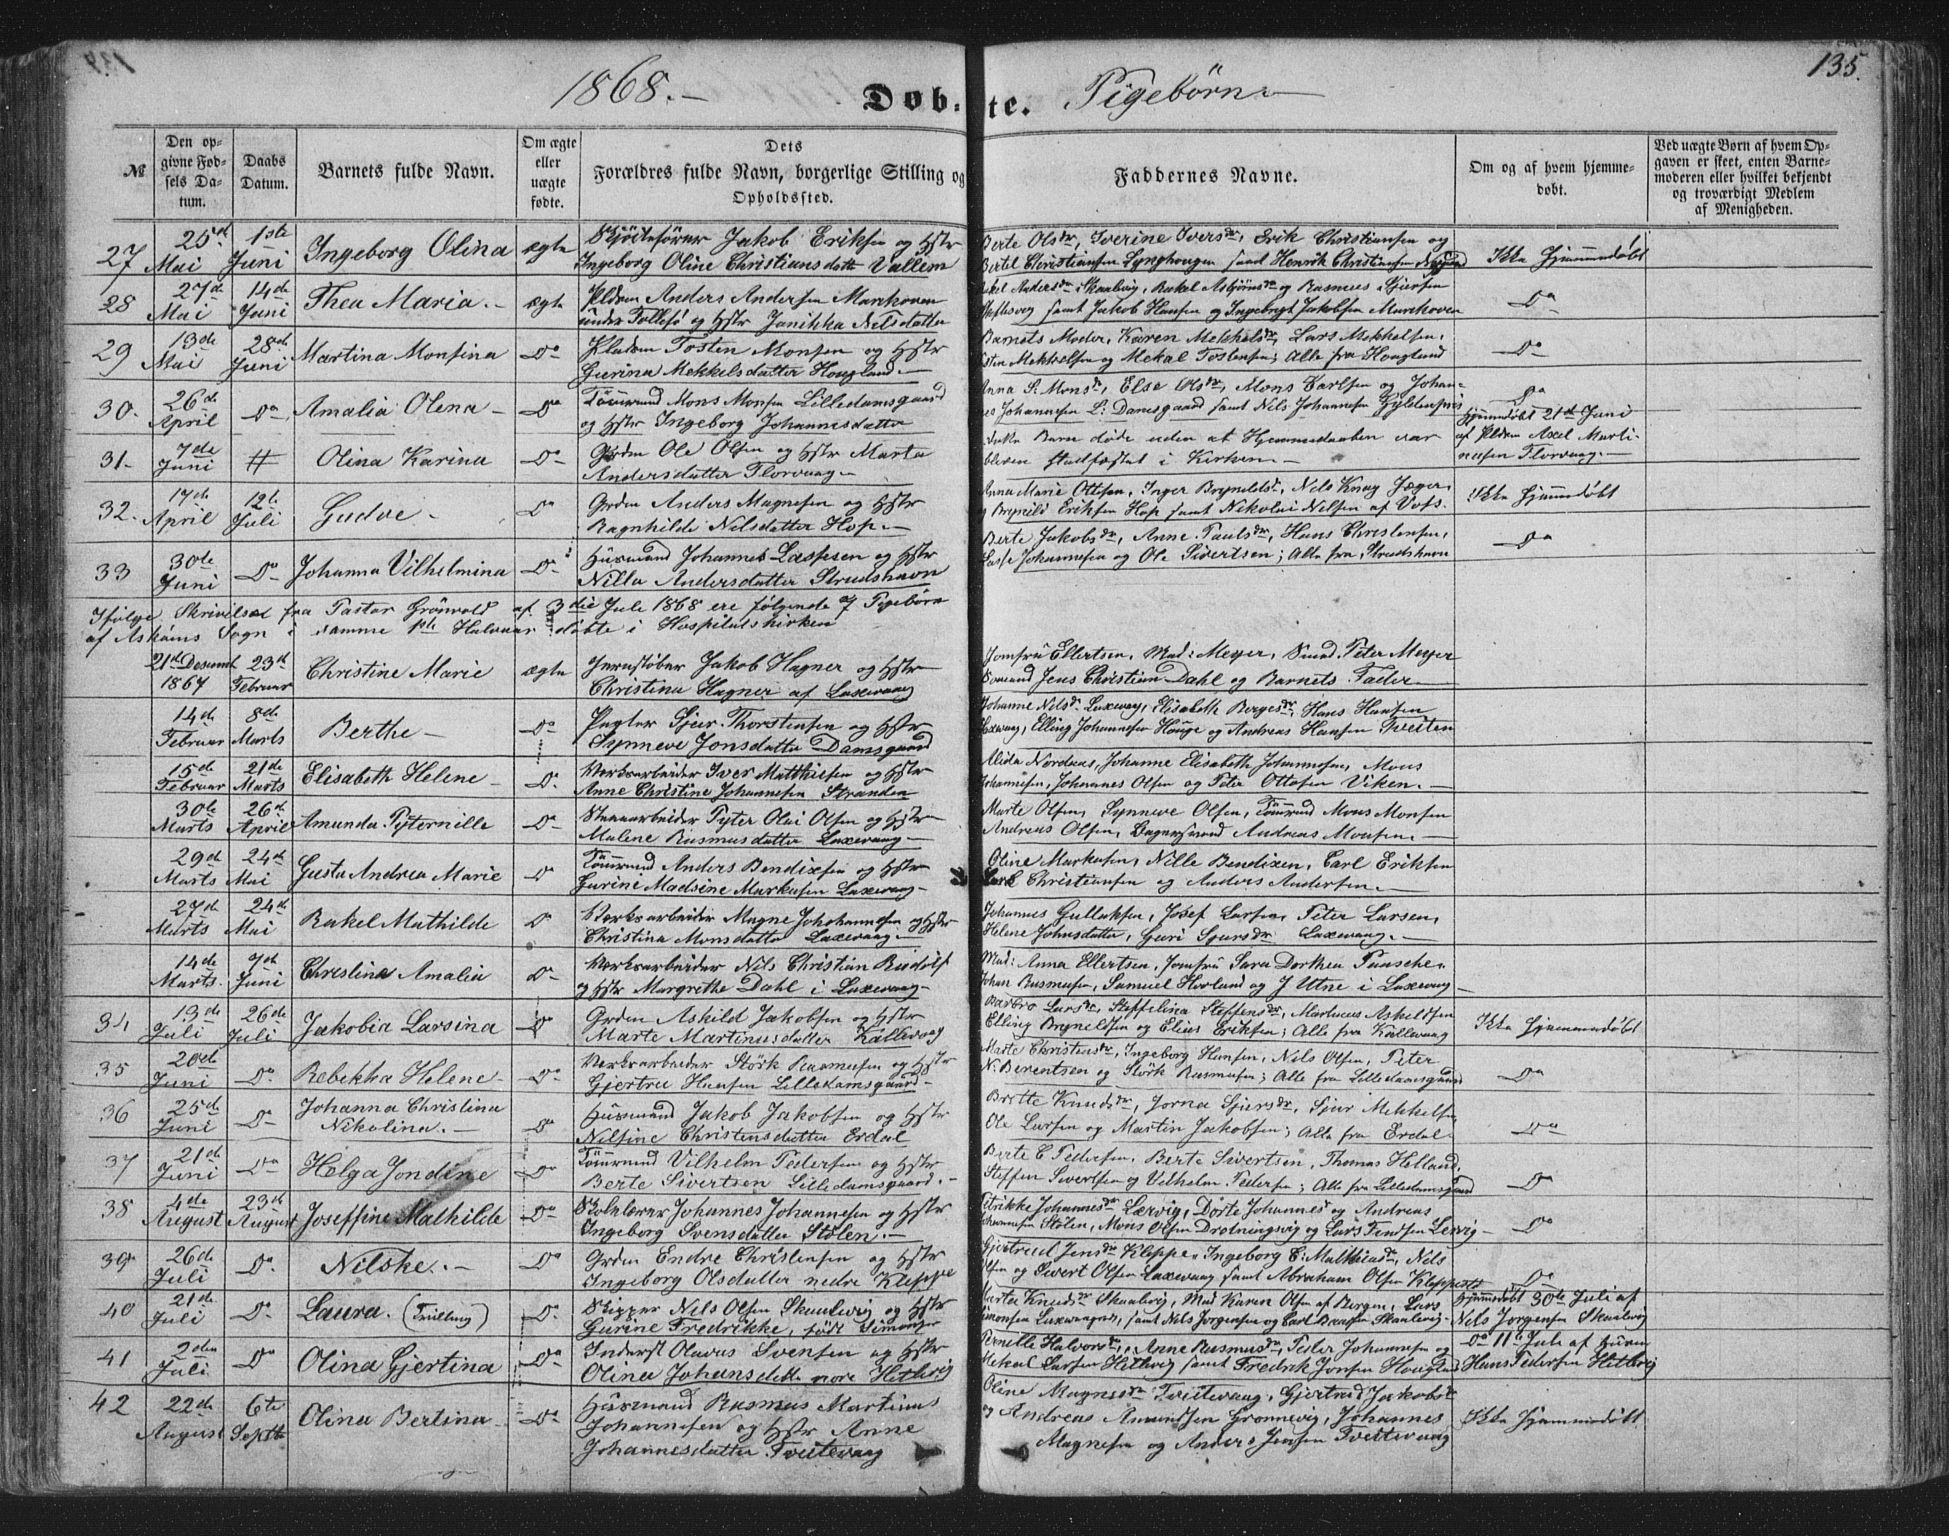 1868.
Døb-te.
Pigebørn
135.
№
Den opgivne Fødsels Datum.
Daabs Datum.
Barnets fulde Navn.
Om ægte eller uægte fødte.
Dets
Forældres fulde Navn, borgerlige Stilling og
Opholdssted.
Faddernes Navne.
Om og af hvem hjemmedøbt.
Ved uægte Børn af hvem Opgaven er skeet, enten Barnemoderen eller hvilket bekjendt og troværdigt Medlem af Menigheden.
27 25de Mai 1ste Juni Ingeborg Olina ægte Jakob Eriksen og Hstr
Ingeborg Oline Christiansdatter Vallem
Berte Olsdr, Iverine Iversdr, Erik Christiansen og
Bertel Christiansen Lynghougen samt Henrik Christiansen
Ikke Hjemmedøbt
28 27de Mai 14de Juni Thea Maria. ægte Anders Andersen Marihoven
under Follesø og Hstr Janikka Nilsdatter
Skaalevig, Rakel Asbjørnsdr og Rasmus
samt Jakob Hansen og Ingebrigt Jakobsen Marihoven
Do
29 13de Mai 28de Juni Martina Monsina Do Tosten Monsen og Hstr
Gurina Mekkelsdatter Hougland.
Barnets Moder, Karen Mekkelsdr, Lars Mekkelsen,
Mekkelsen og Mekal Tostensen; Alle fra Hougland
Do
30. 26de April Do Amalia Olena Do Tømrmd Mons Monsen Lilledamsgaard
og Hstr Ingeborg Johannesdatter
Anna S. Monsdr, Else Olsdr, Mons Carlsen og Johannes
Johannesen L: Damsgaard samt Nils Johannesen Gyldenpris
Do
31. 7de Juni # Olina Karina Do Grdm Ole Olsen og Hstr Marta
Andersdatter Florvaag
Barn døde uden at Hjemmedaaben var
bleven stadfæstet i Kirken
Hjemmedøbt 21de Juni
af Axel Martinusen Florvaag.
32. 17de April 12te Juli Gudve Do Grdm Anders Magnesen og Hstr
Ragnhilde Nilsdatter Hop.
Anna Marie Ottesen, Inger Brynildsdr, Nils Knag Jæger,
Brynild Eriksen Hop samt Nikolai Nilsen af Vofs.
Ikke Hjemmedøbt
33 30te Juni Do Johanna Vilhelmina Do Husmand Johannes Lassesen og Hstr
Nilla Andersdatter Strudshavn
Berte Jakobsdr, Anne Paulsdr, Hans Christensen,
Lasse Johannesen og Ole Sivertsen; Alle fra Strudshavn
Do
Ifølge Skrivelse fra Pastor Grønvold af 3die Juli 1868 ere følgende 7 Pigebørn
af Askøens Sogn i samme 1ste Halvaar døbte i Hospitalskirken
21de Decemb 1867 23de Februar Christine Marie ægte Jernstøber Jakob Hagner og Hstr
Christina Hagner af Laxevaag
Jomfru Ellertsen, Mad: Meyer, Smed Peter Meyer
Sømand Jens Christian Dahl og Barnets Fader
14de Februar 8de Marts Berthe Do Sjur Thorstensen og Hstr
Synneve Jonsdatter Damsgaard
Johanne Nilsdr Laxevaag, Elisabeth Bergesdr, Hans Hansen
Laxevaag, Elling Johannesen Houge og Andreas Hansen Tveiten
15de Februar 21de Marts Elisabeth Helene Do Værksarbeider Iver Matthiesen og Hstr
Anne Christine Johannesen Stranden
Alida Nordnes, Johanne Elisabeth Johannesen, Mons
Johannesen, Johannes Olsen og Peter Ottesen Viken.
30te Marts 26de April Amunda Pyternille Do Pyter Olai Olsen og Hstr
Malene Rasmusdatter Laxevaag
Marte Olsen, Synneve Olsen, Tømrmd Mons Monsen
Andreas Olsen, Andreas Monsen
29de Marts 24de Mai Gusta Andrea Marie Do Tømrmd Anders Bendixsen og Hstr
Gurine Madsine Markusen Laxevaag
Oline Markusen, Nille Bendixen, Carl Eriksen
Christiansen og Anders Andersen.
27de Marts 24de Mai Rakel Mathilde Do Værksarbeider Magne Johannesen og Hstr
Christina Monsdatter Laxevaag
Johannes Gullaksen, Josef Larsen, Peter Larsen,
Helene Johnsdatter, Guri Sjursdr Laxevaag.
14de Marts 7de Juni Christine Amalia Do Værksarbeider Nils Christian Rudolf
og Hstr Margrethe Dahl i Laxevaag
Mad: Anna Ellertsen, Jomfru Sara Dorthea Paasche,
Johan Rasmusen, Samuel Hovland og J Utne i Laxevaag
34 13de Juli 26de Juli Jakobia Larsina Do Grdm Askild Jakobsen og Hstr
Marte Martinusdatter Kallevaag
Barbro Larsdr, Steffelina Steffensdr, Martinus Askeldsen
Elling Brynildsen og Elias Eriksen; Alle fra Kallevaag
Ikke Hjemmedøbt
35 20de Juni Do Rebekka Helene Do Værksarbeider Størk Rasmusen og Hstr
Gjertru Hansen Lilledamsgaard
Marte Christensdr, Ingeborg Hansen, Nils Olsen, Peter
N: Berentsen og Størk Rasmusen; Alle fra Lilledamsgaard
Do
36 25de Juni Do Johanna Christina Nikolina. Do Husmand Jakob Jakobsen og Hstr
Nilsine Christensdatter Erdal
Brette Knudsdr, Jorna Sjursdr, Sjur Mekkelsen
Ole Larsen og Martin Jakobsen; Alle fra Erdal
Do
37 21de Juni Do Helga Jondine Do Tømrmd Vilhelm Pedersen og Hstr
Berte Sivertsen Lilledamsgaard.
Berte E Pedersen, Berte Sivertsen, Thomas Helland,
Steffen Sivertsen og Vilhelm Pedersen; Alle fra Lilledamsgaard
Do
38 4de August 23de August Joseffine Mathilde Do Skolelærer Johannes Johannesen og Hstr
Ingeborg Svensdatter Stølen.
Johannesdr Lærvig, Dorte Johannesdr og Andreas
Johannesen Stølen, Mons Olsen Drotningsvig og Lars Lervig
Do
39 26de Juli Do Nilske. Do Grdm Endre Christensen og Hstr
Ingeborg Olsdatter nedre Kleppe
Gjertrud Jensdr Kleppe, Ingeborg C: Mathiasdr, Nils
Olsen og Sivert Olsen Laxevaag samt Abraham Olsen Kleppestø
Do
40 21de Juli Do Laura. (Tvilling) Do Nils Olsen Skaalevig og Hstr
Gurine Fredrikke, født Simonsen
Marta Knudsdr Skaalevig, Mad Karen Olsen af Bergen, Lars
Simonsen Laxevaag, samt Nils Jørgensen og Carl Skaalevig
Hjemmedøbt 30te Juli af
Nils Jørgensen Skaalevig
41 2den Juli Do Olina Gjertina Do Inderst Olavus Svensen og Hstr
Olina Johansdatter Hetlevig
Pernille Halvorsdr, Anne Rasmusdr, Peder Johannesen og
Mekal Larsen Hetlevig samt Fredrik Jonsen Hougland
Do 11te Juli af
Hans Pedersen Hetlevig
42 22de August 6te Septbr Olina Bertina Do Husmand Rasmus Martinus
Johannesen og Hstr Anne
Johannesdatter Tveitevaag
Oline Magnesdr Tveitevaag, Gjertrud Jakobsdr
og Andreas Amundsen Grønnevig, Johannes
Magnesen og Anders Jensen Tveitevaag
Ikke Hjemmedøbt